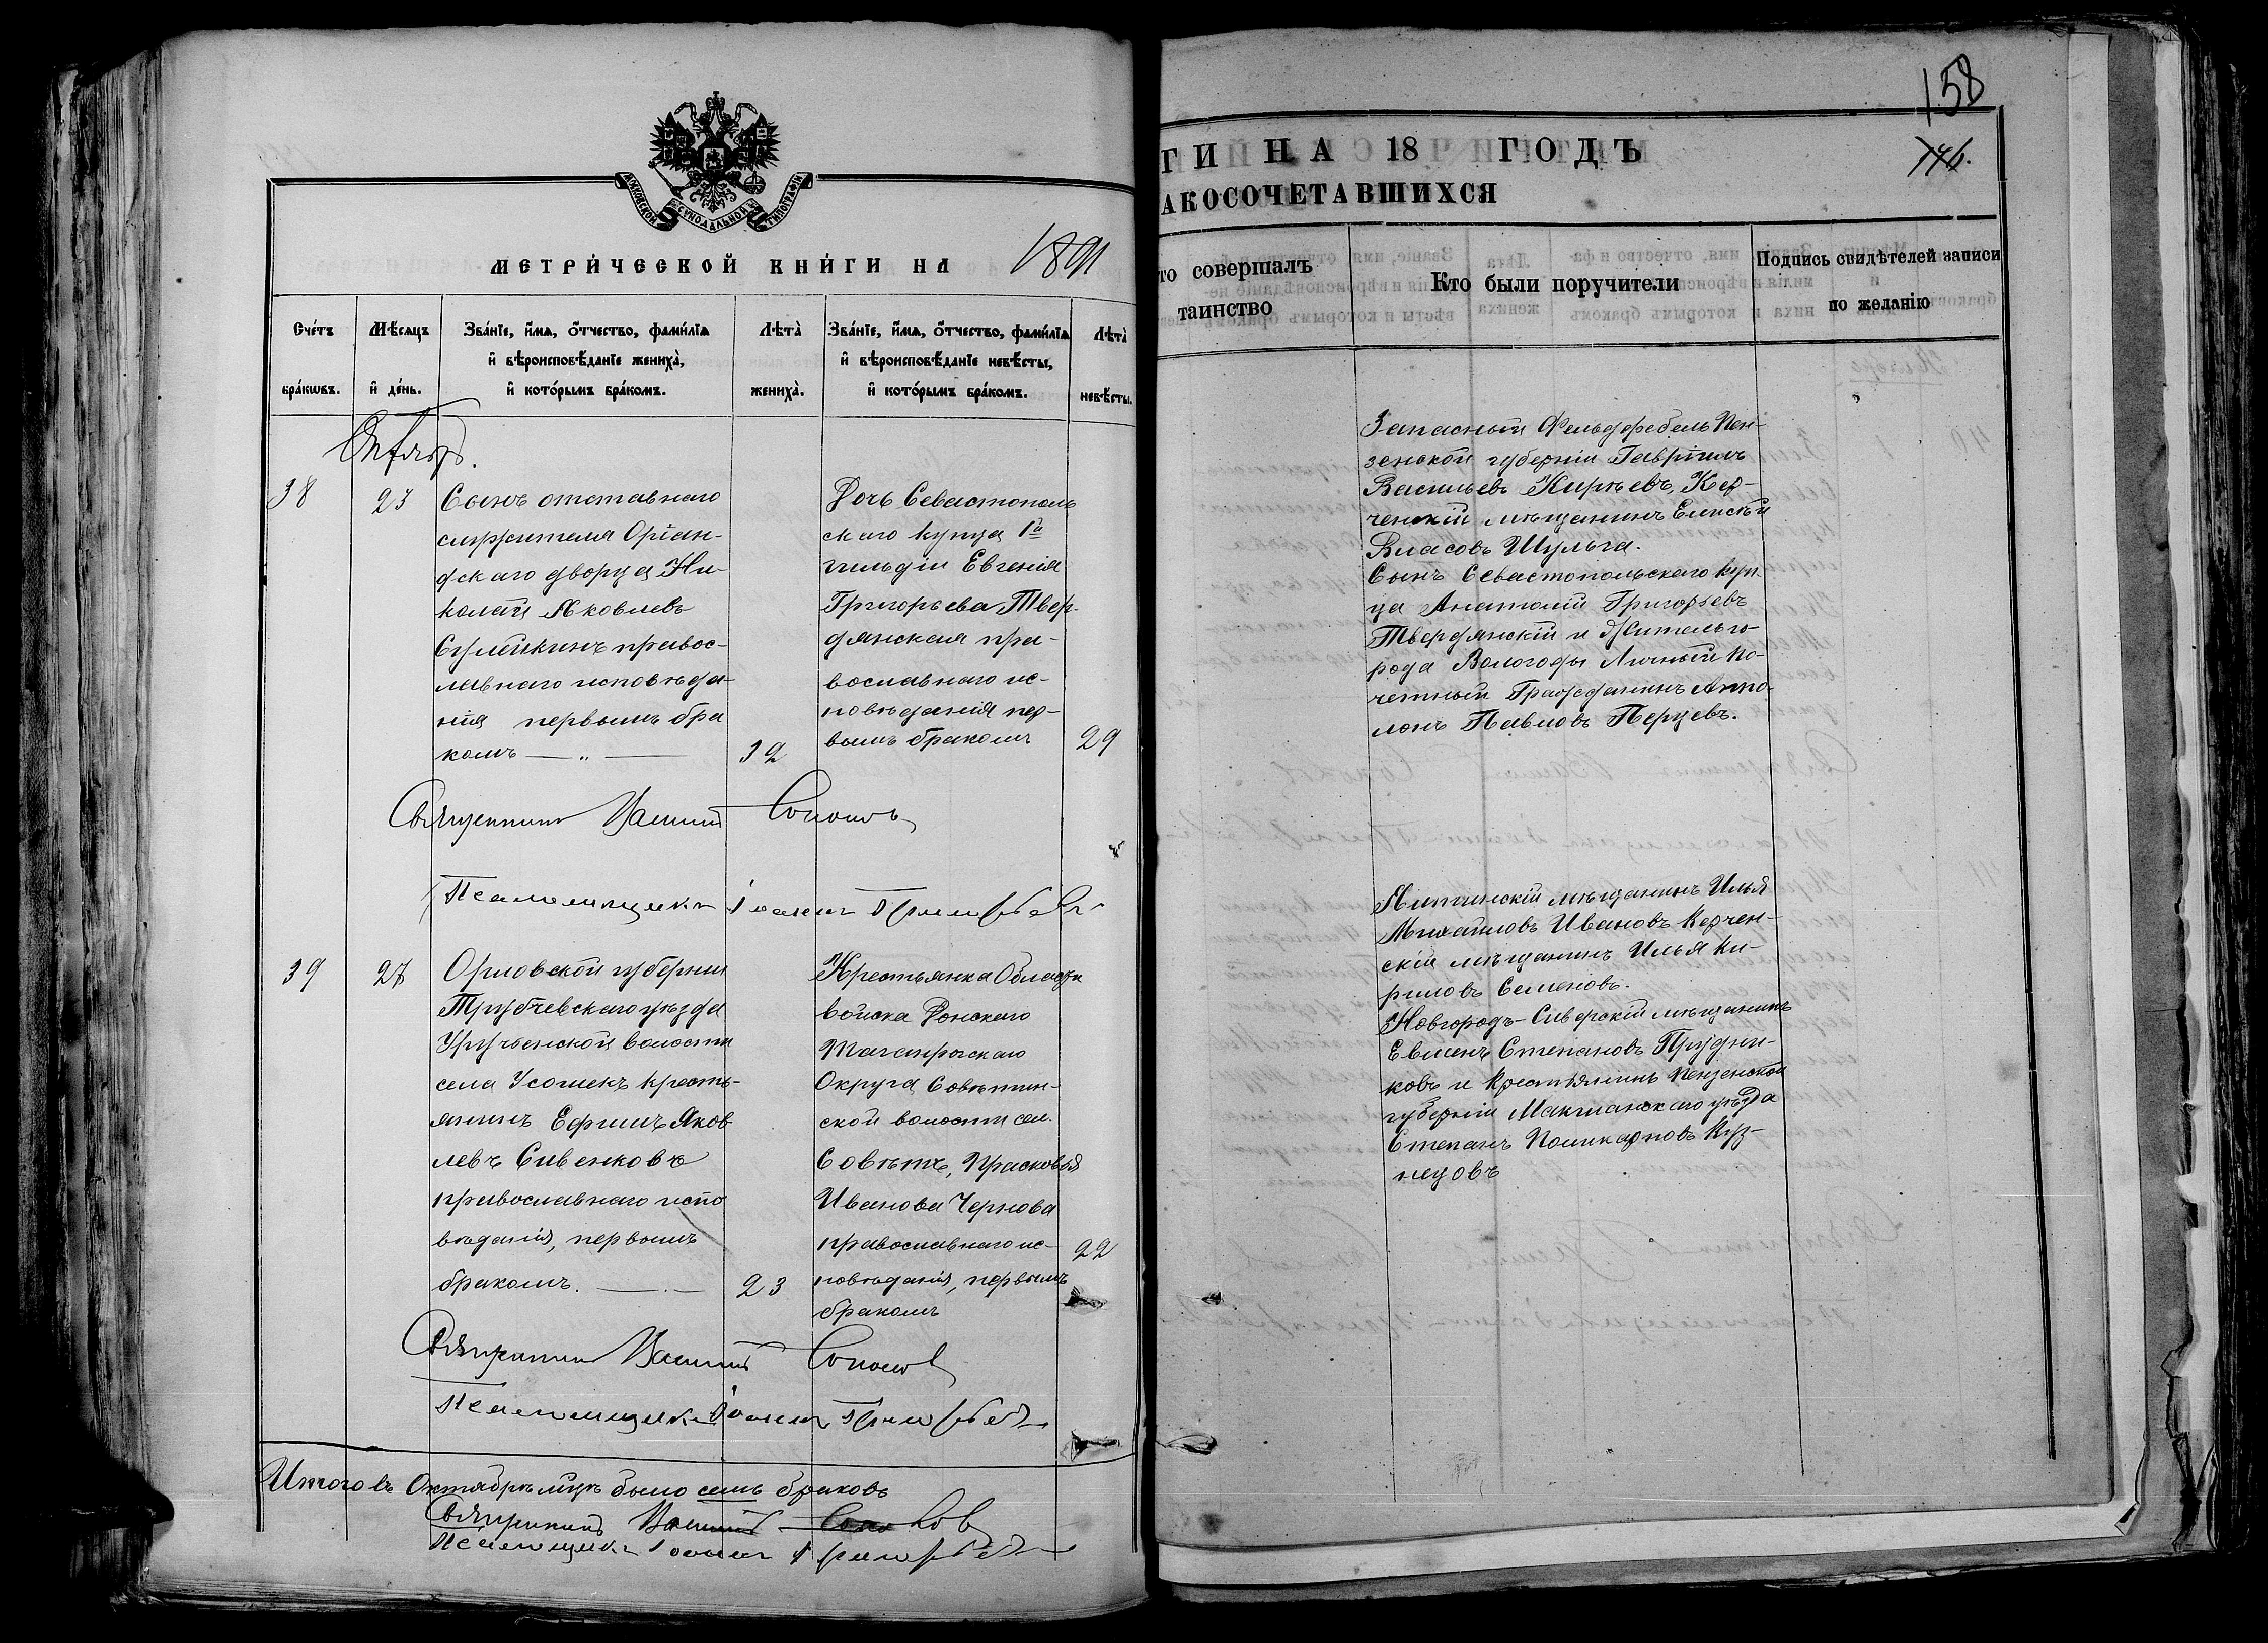 МОСКОВСКОЙ СѴНОДАЛЬНОЙ ТИПОГРАФІИ
МЕТРИ́ЧЕСКОЙ КНИ́ГИ НА 1891
Сче́тъ бра́кωвъ.
Мѣ́сяцъ и҆ де́нь.
Зва́нїе, и҆́мѧ, ѻ҆́тчество, фами́лїѧ
и҆ вѣроисповѣ́данїе жениха̀,
и҆ кото́рымъ бра́комъ.
Лѣта̀ жениха̀.
Зва́нїе, и҆́мѧ, ѻ҆́тчество, фами́лїѧ
и҆ вѣроисповѣ́данїе невѣ́сты,
и҆ кото́рымъ бра́комъ.
Лѣта̀ невѣ́сты.
Октябрь.
38
23
Сынъ отставнаго
служителя Оріан-
дскаго дворца Ни-
колай Яковлевъ
правос-
лавнаго исповѣда-
нія первымъ бра
комъ — „ —
32
Дочь Севастополь
скаго купца 1й
гильдіи Евгенія
Григорьева Твер-
дянская пра-
вославнаго ис-
повѣданія пер-
вымъ бракомъ
29
Священникъ Соколовъ
Псаломщикъ Іоаннъ Григорьевъ
39
27
Орловской губерніи
Трубчевскаго уѣзда
Уручьенской волости
села Усошекъ кресть-
янинъ Ефимъ Яков
левъ Сивенковъ
православнаго испо
вѣданія, первымъ
бракомъ. —
23
Крестьянка Области
войска Донскаго
Таганрогскаго
Округа Совѣтин-
ской волости сел.
Совѣтъ, Прасковья
Иванова Чернова
православнаго ис-
повѣданія, первымъ
бракомъ
22
Священникъ Соколовъ
Псаломщикъ Іоаннъ Григорьевъ
Итого въ Октябрѣ м-цѣ было семь браковъ
Священникъ Соколовъ
Псаломщикъ Іоаннъ Григорьевъ
158
146.
ГИ НА 18 ГОДЪ
АКОСОЧЕТАВШИХСЯ
то совершалъ
таинство
Кто были поручители
Подпись свидѣтелей записи
по желанію
Запасный Фельдфебель Пен-
зенской губерніи Гавріилъ
Васильевъ Кирѣевъ, Кер-
ченскій мѣщанинъ Елисѣй
Власовъ Шульга.
Сынъ Севастопольскаго куп-
ца Анатолій Григорьевъ
Твердянскій и Житель го-
рода Вологды Личный По-
четный Гражданинъ Аппо-
лонъ Павловъ Перцевъ.
Ялтинскій мѣщанинъ Илья
Михайловъ Ивановъ Керчен-
скій мѣщанинъ Илья Ки-
риловъ Семеновъ.
Новгородъ-Сиверскій мѣщанинъ
Степановъ Прудни-
ковъ и Крестьянинъ Пензенской
губерніи Мокшанскаго уѣзда
Степанъ Поликарповъ Куз-
нецовъ